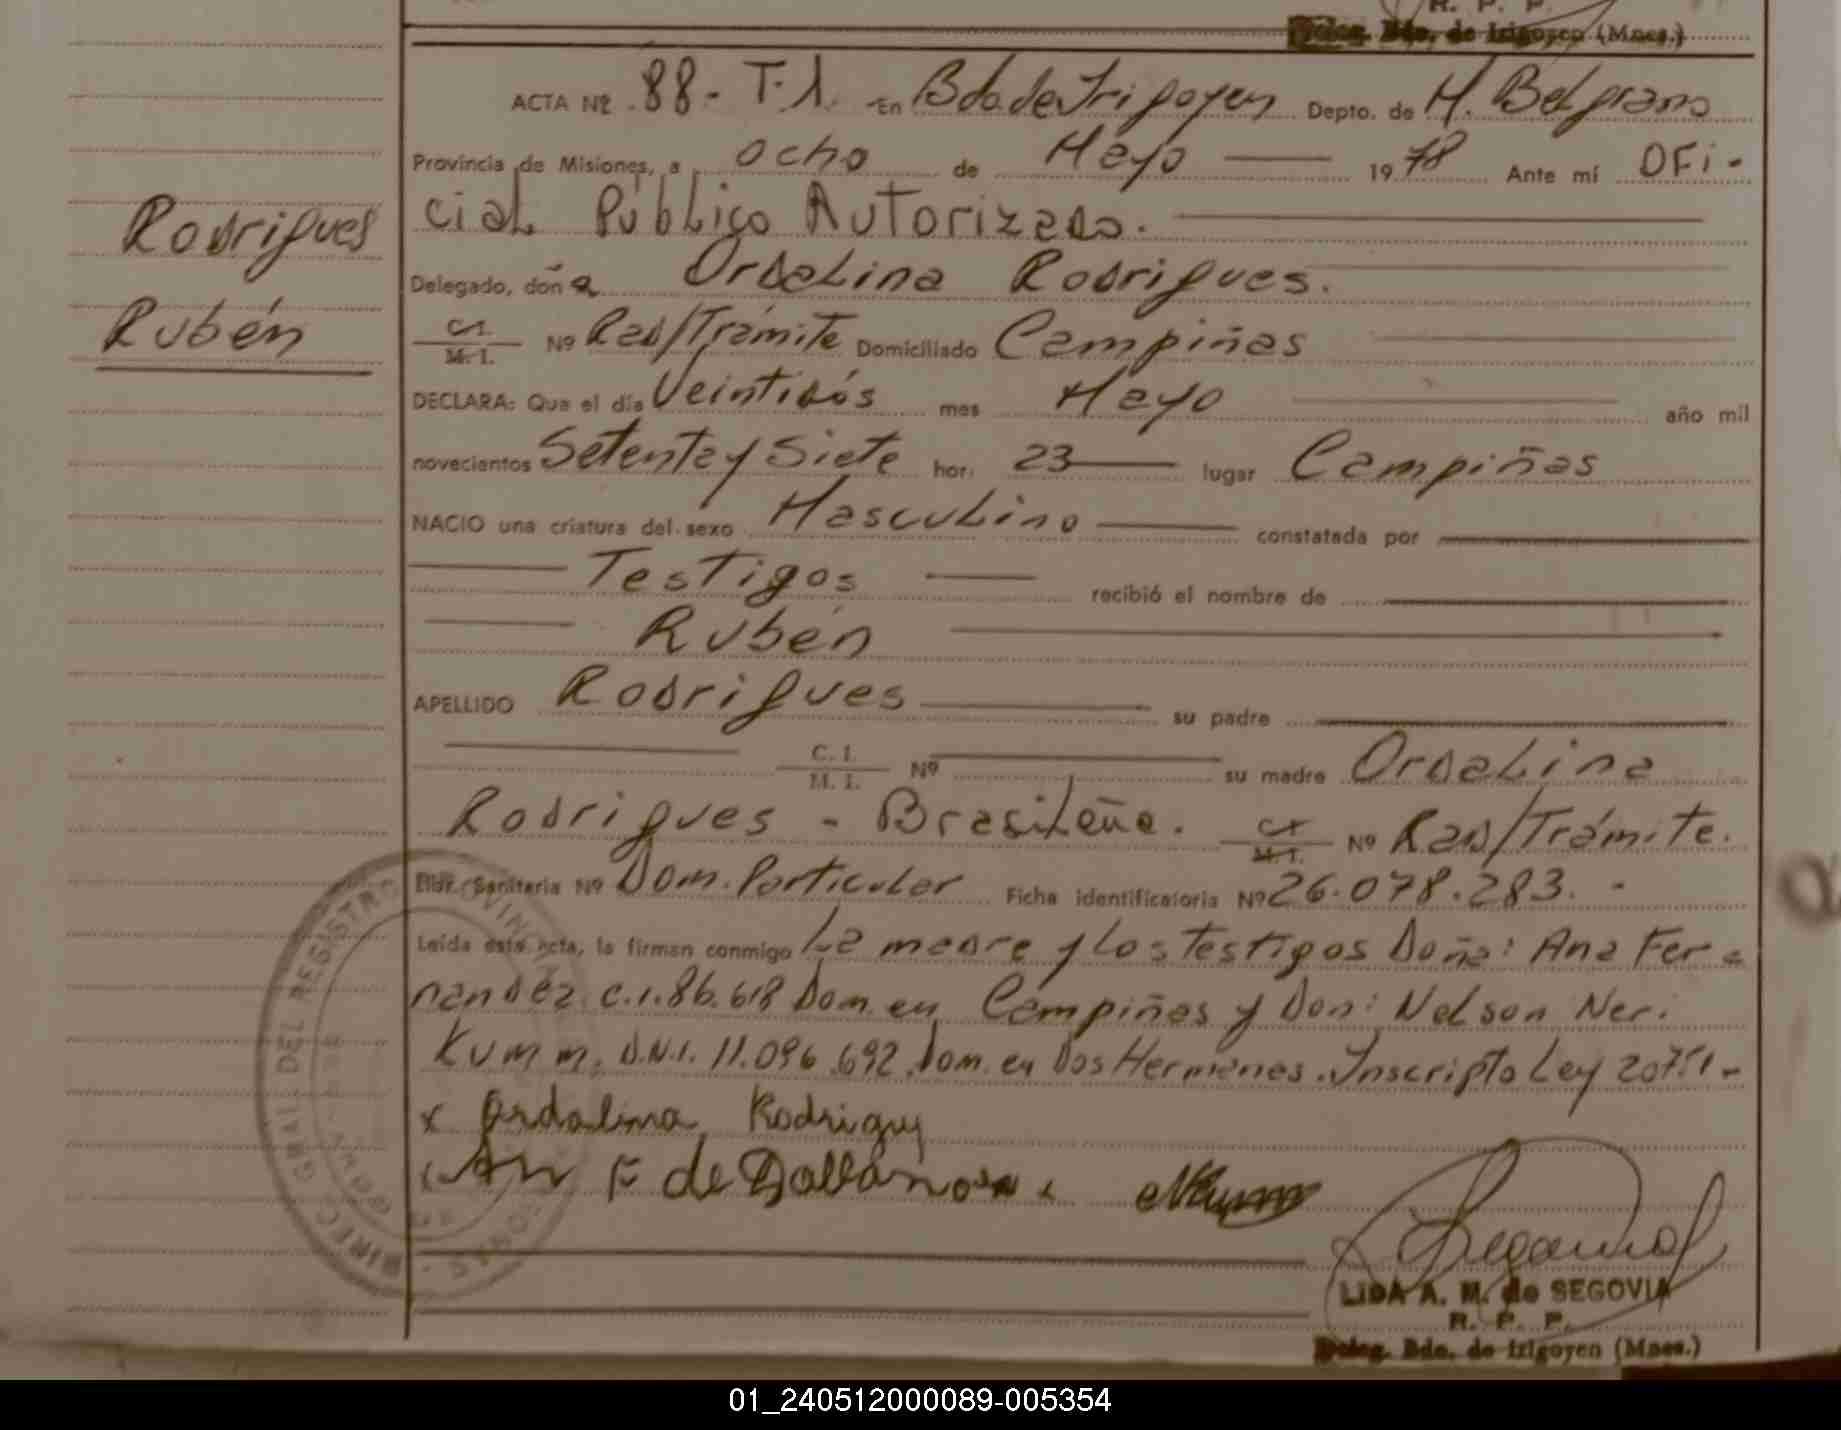 R. P. P.
Deleg. Bdo. de Irigoyen (Mnes.)
ACTA Nº 88 - T. 1. En Bdo. de Irigoyen Depto. de M. Belgrano
Provincia de Misiones, a ocho de Mayo 1978 Ante mí OFi-
cial Público Autorizado.
Delegado, doña Ordalina Rodrigues.
C.I. M. I. Nº Rad/Trámite Domiciliado Campiñas
DECLARA: Que el día Veintidós mes Mayo año mil
novecientos Setenta y Siete hor. 23 lugar Campiñas
NACIO una criatura del sexo Masculino constatada por
Testigos recibió el nombre de
Rubén
APELLIDO Rodrigues su padre
C. I. M. I. Nº su madre Ordalina
Rodrigues - Brasileña. C.I. M. I. Nº Rad/Trámite.
Libr. Sanitaria Nº Dom. Particular Ficha identificatoria Nº 26.078.283. -
Leída esta acta, la firman conmigo La madre y Los Testigos Doña: Ana Fer-
nandez C.I. 86.618 Dom. en Campiñas y Don: Nelson Neri
Kumm. D.N.I. 11.096.692. Dom. en Dos Hermanas. Inscripto Ley 20751 -
x Ordalina Rodrigues
F de
LIDA A. M. de SEGOVIA
R. P. P.
Deleg. Bdo. de Irigoyen (Mnes.)
Rodrigues
Rubén
DIREC. GRAL. DEL REGISTRO PROVINCIAL
01_240512000089-005354